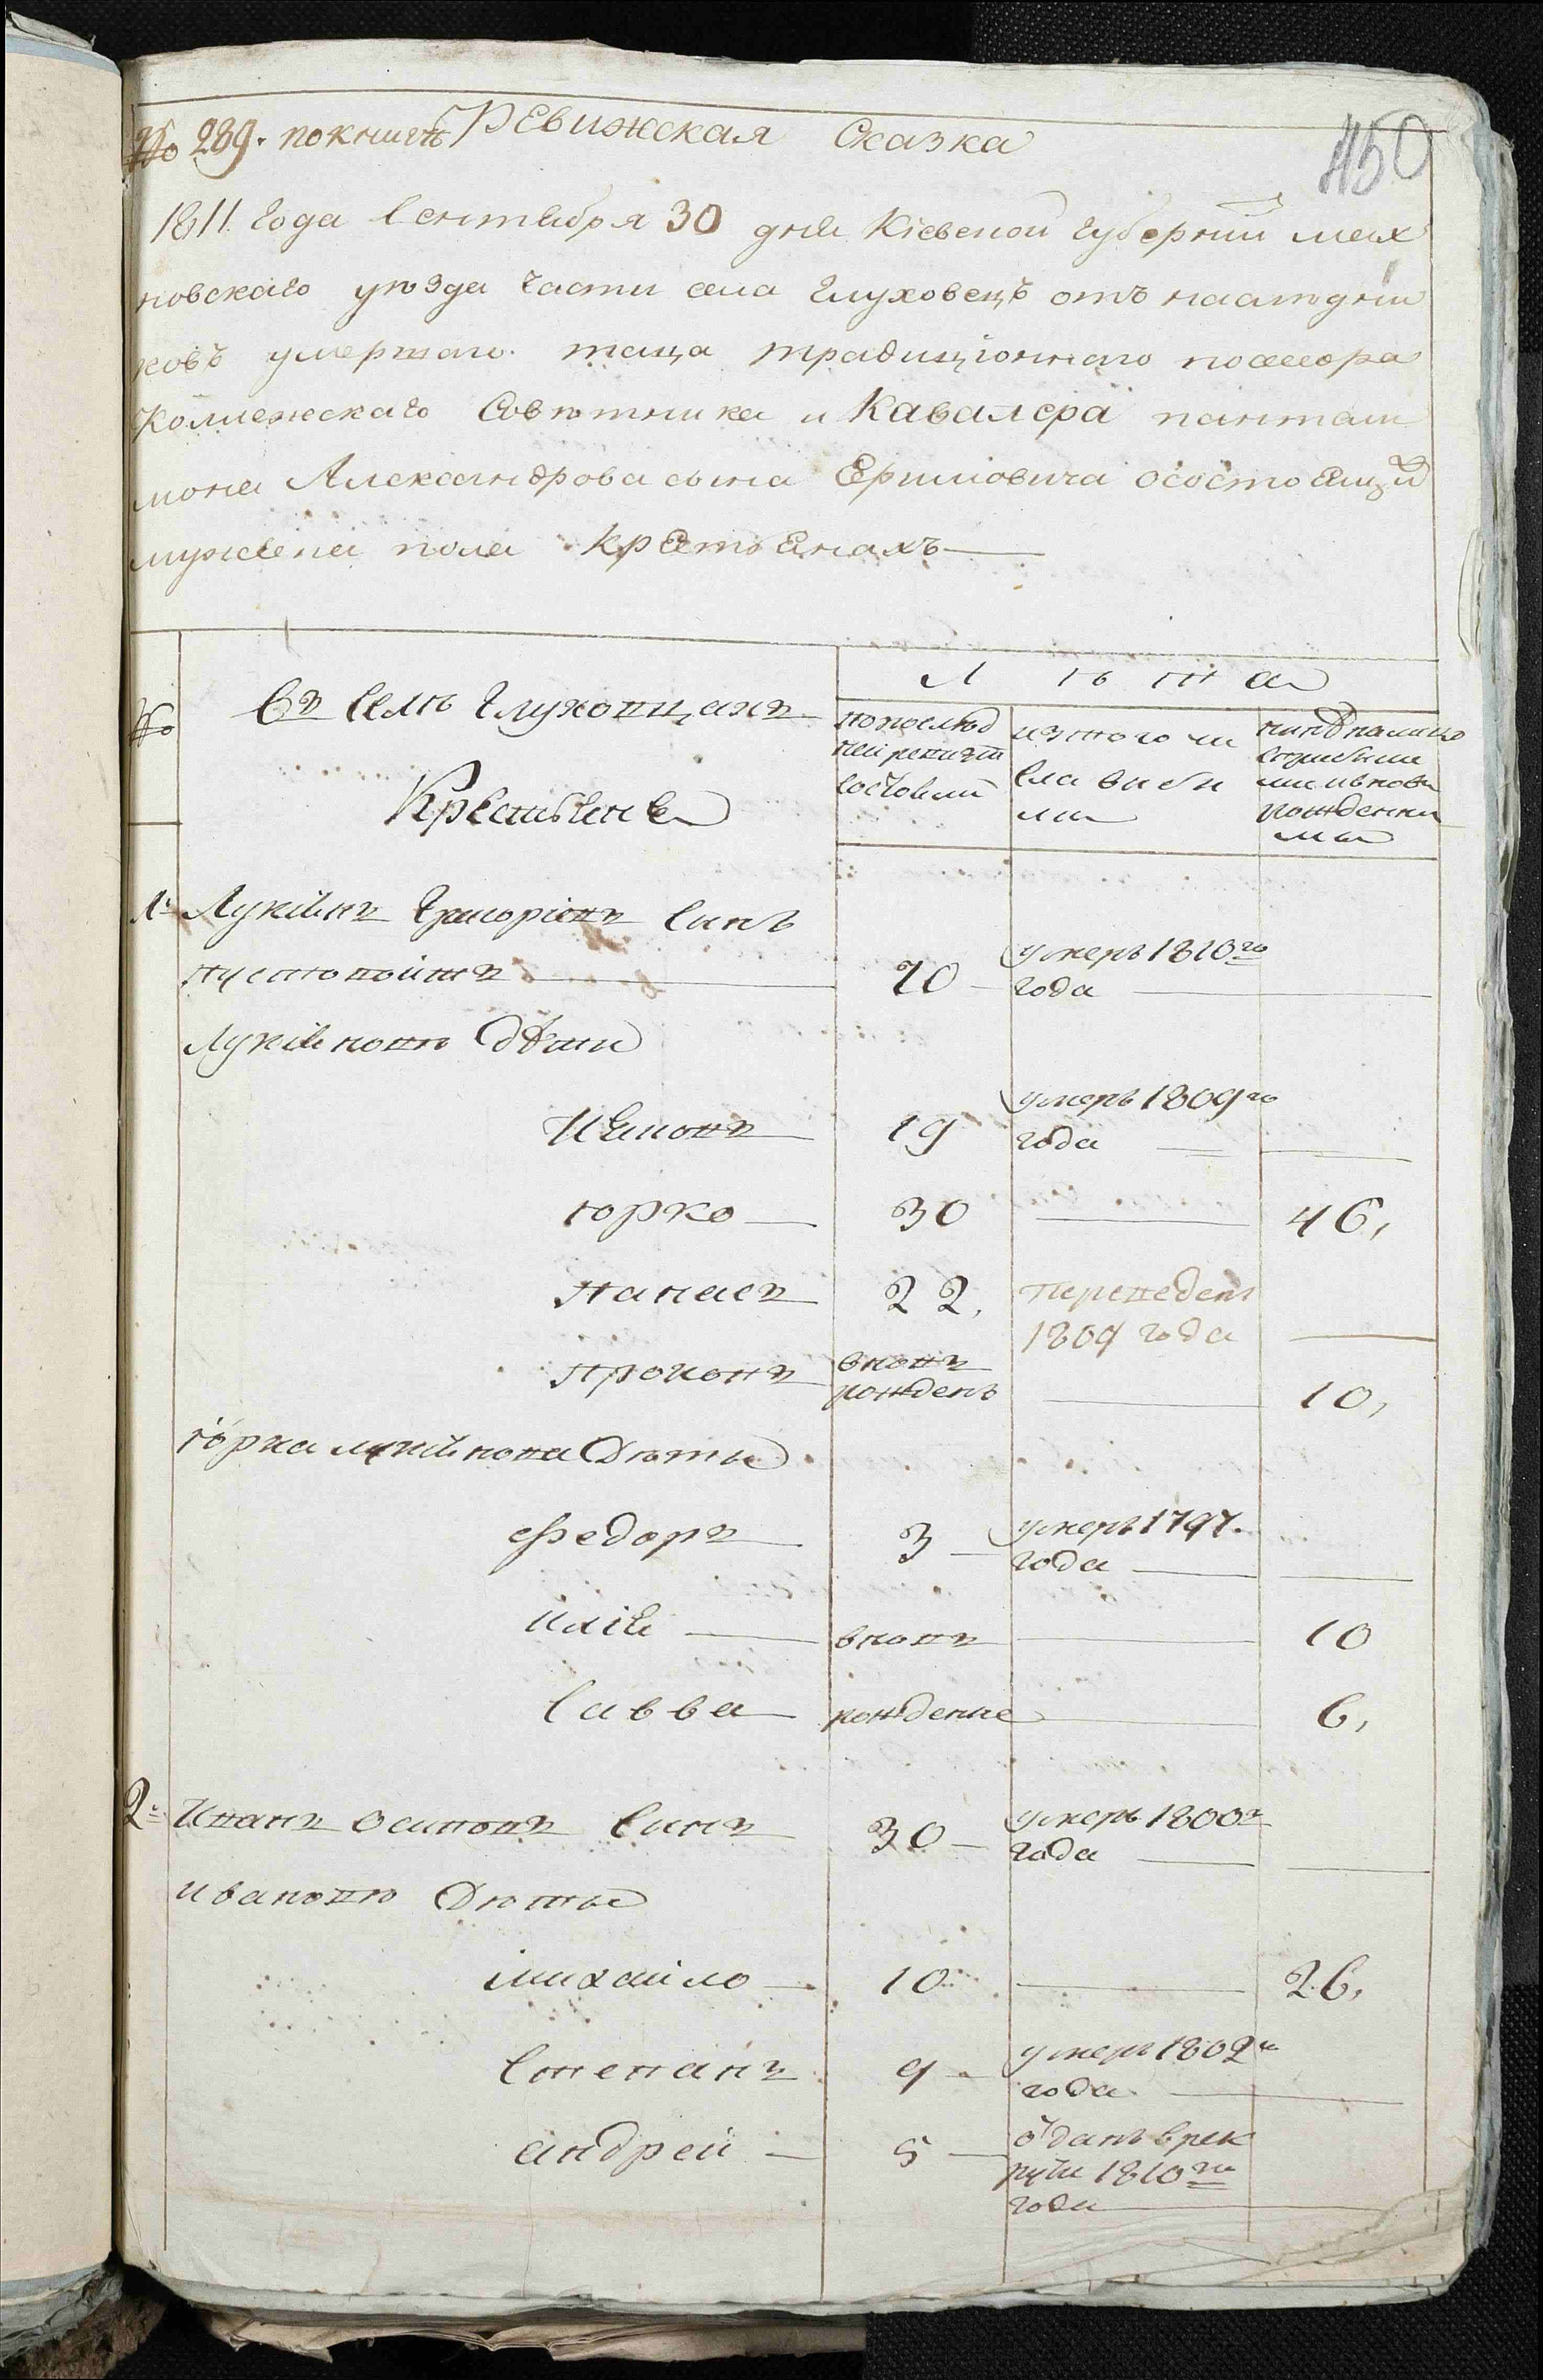 № 289. по книгѣ Ревижская Сказка
450
1811 года Сентября 30 дня Кіевской губерніи мах
новскаго уѣзда части села Глуховецъ отъ наслѣдни
ковъ умершаго традиціоннаго посесора
Колежскаго Совѣтника и Кавалера пантали
мона Александрова сына о состоящих
мужска пола крестянахъ
№
Въ Селѣ Глуховцахъ
Крестьяне
Л ѣ т а
по послѣд
ней ревизіи
состояли
изтого чи
сла выбы
ли
нинѣ налицо
мы
1. Лукіянъ Григоріевъ Синъ
70
умеръ 1810го
года
Лукіяновы дѣти
19
умеръ 1809го
года
юрко 30 46,
Панасъ 22, Переведенъ
1809 года
Прокопъ вновъ
рожденъ 10,
юрка лукіянова Дѣты
Федоръ 3 умеръ 1797.
года
Илія вновъ 10
Савва рождение 6,
2. Иванъ Осиповъ Синъ 30 умеръ 1800го
года
Ивановы Дѣты
михайло 10 26,
Степанъ 9 умеръ 1802го
года
андрей 5 оданъ в рек
руты 1810го
года